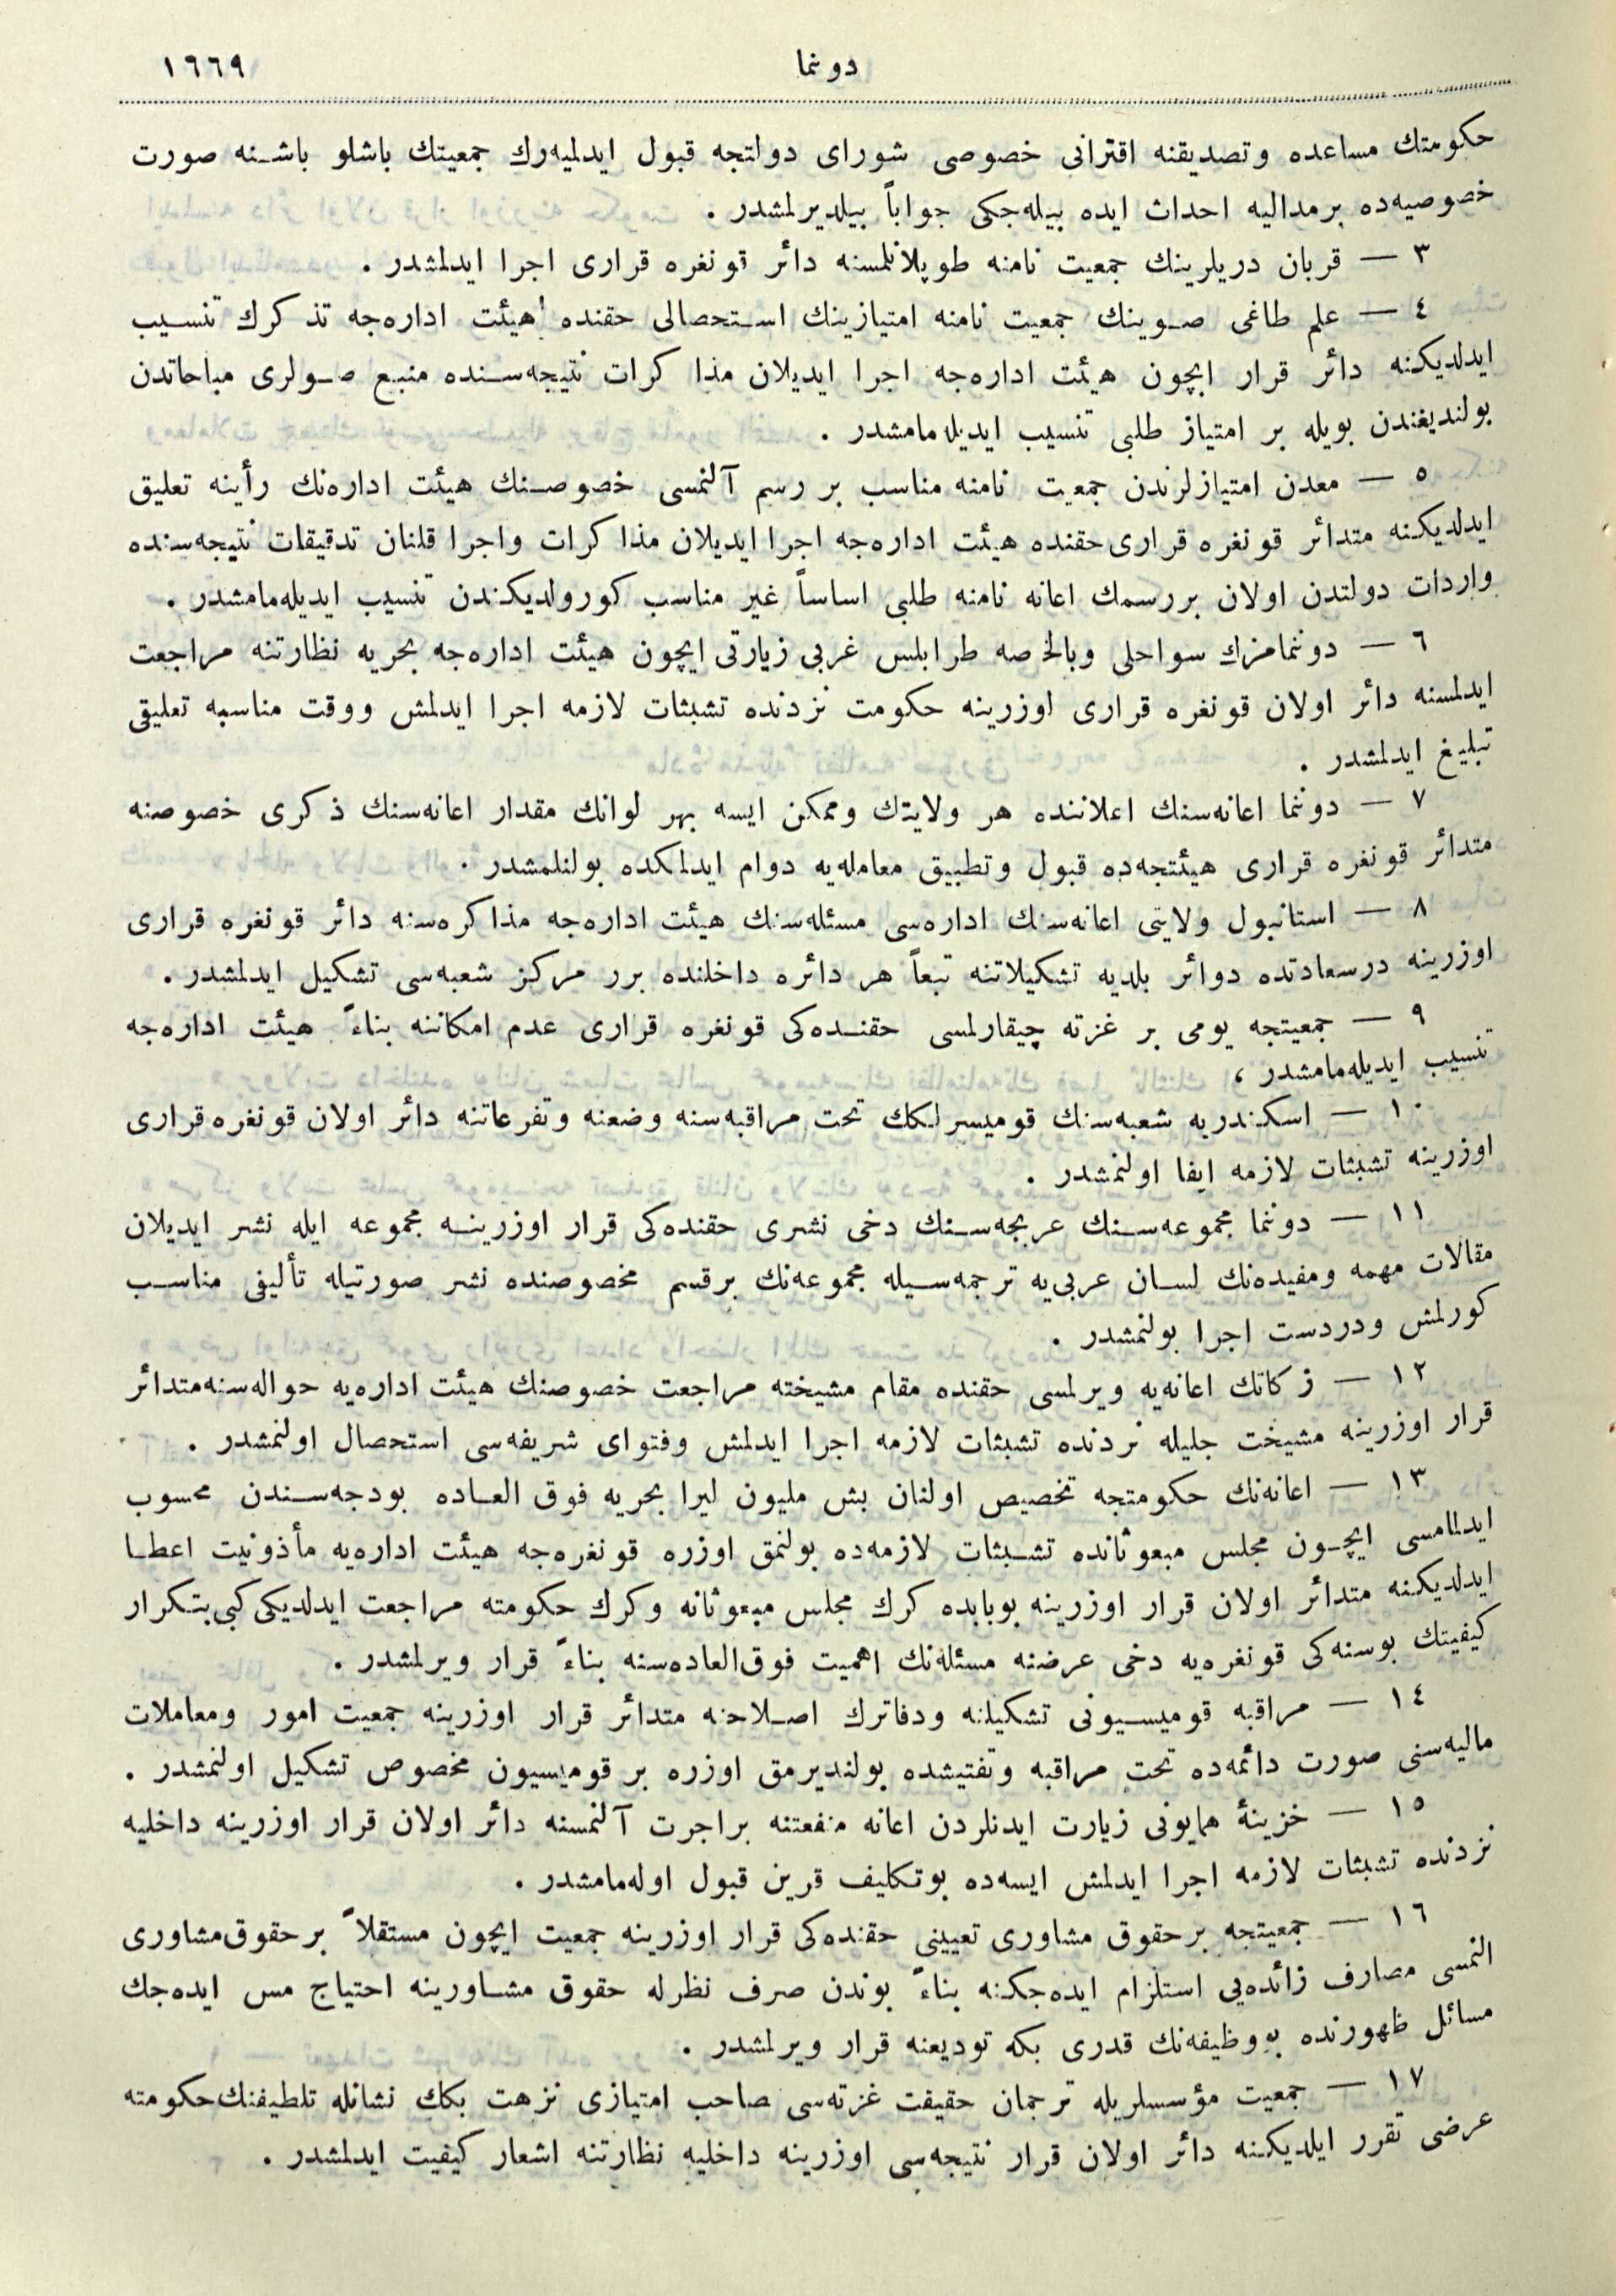 دونما
١٦٦٩
حكومتك مساعده وتصديقنه اقترانى خصوصى شوراى دولتجه قبول ايدلميه‌رك جمعيتك باشلو باشنه صورت
خصوصيه‌ده برمداليه احداث ايده بيله‌جكى جواباً بيلديرلمشدر .
٣ — قربان دريلرينك جمعيت نامنه طوپلانلمسنه دائر قونغره قرارى اجرا ايدلمشدر .
٤ — علم طاغى صوينك جمعيت نامنه امتيازينك استحصالى حقنده هيئت اداره‌جه تذكرك تنسيب
ايدلديكنه دائر قرار ايچون هيئت اداره‌جه اجرا ايديلان مذاكرات نتيجه‌سنده منبع صولرى مباحاتدن
بولنديغندن بويله بر امتياز طلبى تنسيب ايديله‌مامشدر .
٥ — معدن امتيازلرندن جمعيت نامنه مناسب بر رسم آلنمسى خصوصنك هيئت اداره‌نك رأينه تعليق
ايدلديكنه متدائر قونغره قرارى حقنده هيئت اداره‌جه اجرا ايديلان مذاكرات واجرا قلنان تدقيقات نتيجه‌سنده
واردات دولتدن اولان بررسمك اعانه نامنه طلبى اساساً غير مناسب كورولديكندن تنسيب ايديله‌مامشدر .
٦ — دونمامزك سواحلى وبالخصه طرابلس غربى زيارتى ايچون هيئت اداره‌جه بحريه نظارتنه مراجعت
ايدلمسنه دائر اولان قونغره قرارى اوزرينه حكومت نزدنده تشبثات لازمه اجرا ايدلمش ووقت مناسبه تعليقى
تبليغ ايدلمشدر .
٧ — دونما اعانه‌سنك اعلاننده هر ولايتك وممكن ايسه بهر لوانك مقدار اعانه‌سنك ذكرى خصوصنه
متدائر قونغره قرارى هيئتجه‌ده قبول وتطبيق معامله‌يه دوام ايدلمكده بولنلمشدر .
٨ — استانبول ولايتى اعانه‌سنك اداره‌سى مسئله‌سنك هيئت اداره‌جه مذاكره‌سنه دائر قونغره قرارى
اوزرينه درسعادتده دوائر بلديه تشكيلاتنه تبعاً هر دائره داخلنده برر مركز شعبه‌سى تشكيل ايدلمشدر .
٩ — جمعيتجه يومى بر غزته چيقارلمسى حقنده‌كى قونغره قرارى عدم امكاننه بناءً هيئت اداره‌جه
تنسيب ايديله‌مامشدر ،
١٠ — اسكندريه شعبه‌سنك قوميسرلكك تحت مراقبه‌سنه وضعنه وتفرعاتنه دائر اولان قونغره قرارى
اوزرينه تشبثات لازمه ايفا اولنمشدر .
١١ — دونما مجموعه‌سنك عربجه‌سنك دخى نشرى حقنده‌كى قرار اوزرينه مجموعه ايله نشر ايديلان
مقالات مهمه ومفيده‌نك لسان عربى‌يه ترجمه‌سيله مجموعه‌نك برقسم مخصوصنده نشر صورتيله تأليفى مناسب
كورلمش ودردست اجرا بولنمشدر .
١٢ — زكاتك اعانه‌يه ويرلمسى حقنده مقام مشيخته مراجعت خصوصنك هيئت اداره‌يه حواله‌سنه متدائر
قرار اوزرينه مشيخت جليله نزدنده تشبثات لازمه اجرا ايدلمش وفتواى شريفه‌سى استحصال اولنمشدر .
١٣ — اعانه‌نك حكومتجه تخصيص اولنان بش مليون ليرا بحريه فوق العاده بودجه‌سندن محسوب
ايدلمامسى ايچون مجلس مبعوثانده تشبثات لازمه‌ده بولنمق اوزره قونغره‌جه هيئت اداره‌يه مأذونيت اعطا
ايدلديكنه متدائر اولان قرار اوزرينه بوبابده كرك مجلس مبعوثانه وكرك حكومته مراجعت ايدلديكى كبى بتكرار
كيفيتك بوسنه‌كى قونغره‌يه دخى عرضنه مسئله‌نك اهميت فوق‌العاده‌سنه بناءً قرار ويرلمشدر .
١٤ — مراقبه قوميسيونى تشكيلنه ودفاترك اصلاحنه متدائر قرار اوزرينه جمعيت امور ومعاملات
ماليه‌سنى صورت دائمه‌ده تحت مراقبه وتفتيشده بولنديرمق اوزره بر قوميسيون مخصوص تشكيل اولنمشدر .
١٥ — خزينهٔ همايونى زيارت ايدنلردن اعانه منفعتنه براجرت آلنمسنه دائر اولان قرار اوزرينه داخليه
نزدنده تشبثات لازمه اجرا ايدلمش ايسه‌ده بوتكليف قرين قبول اوله‌مامشدر .
١٦ — جمعيتجه برحقوق مشاورى تعيينى حقنده‌كى قرار اوزرينه جمعيت ايچون مستقلاً برحقوق‌مشاورى
النمسى مصارف زائده‌يى استلزام ايده‌جكنه بناءً بوندن صرف نظرله حقوق مشاورينه احتياج مس ايده‌جك
مسائل ظهورنده بو وظيفه‌نك قدرى بكه توديعنه قرار ويرلمشدر .
١٧ — جمعيت مؤسسلريله ترجمان حقيقت غزته‌سى صاحب امتيازى نزهت بكك نشانله تلطيفنك حكومته
عرضى تقرر ايلديكنه دائر اولان قرار نتيجه‌سى اوزرينه داخليه نظارتنه اشعار كيفيت ايدلمشدر .